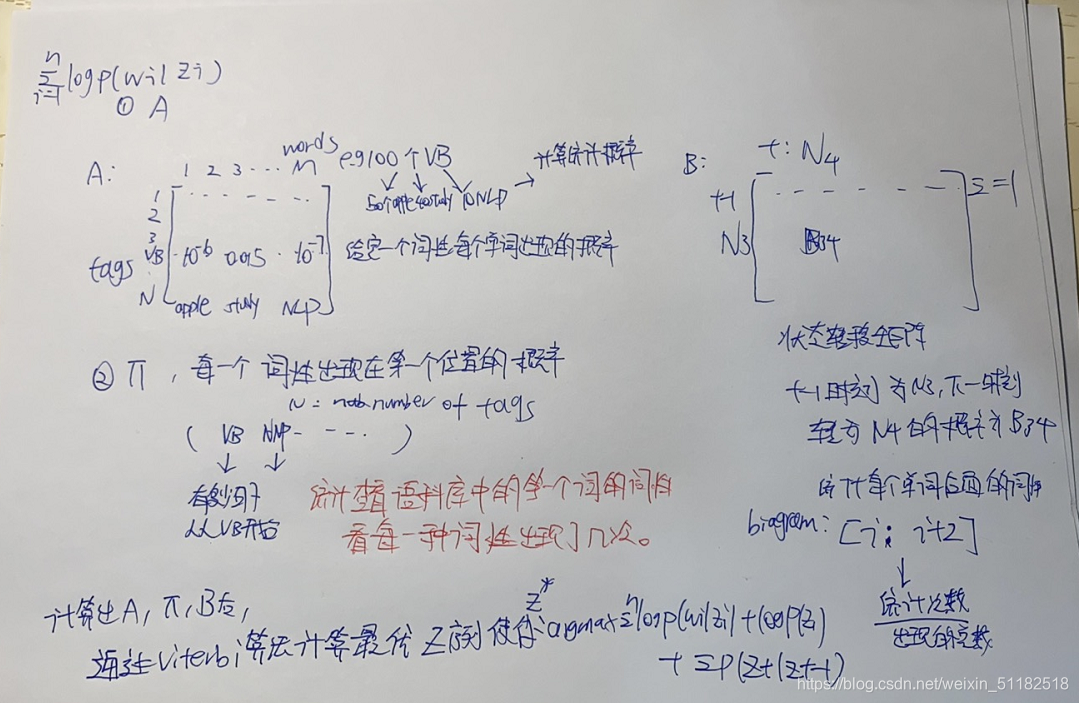 n
Σ logp(wi|zi)
i=1
① A
A:
1 2 3 ... M words
e.g 100个VB
50个apple 40study 10NLP → 计算统计概率
1
2
3
tags VB 10^-6 0.015 · 10^-7
N
apple study NLP
给定一个词性每个字词出现的概率
B:
t: N4
t-1
N3 B34 Σ=1
状态转移矩阵
t-1时刻为N3,下一时刻
转为N4的概率为B34
统计每个单词后面的词性
biagram: [i: i+2]
统计次数
出现的总数
② π, 每一个词性出现在第一个位置的概率
N = number of tags
( VB NNP - - - . )
有多少句子
以VB开始
统计查语料库中的第一个词的词性
看每一种词性出现了几次。
计算出A, π, B后,
通过Viterbi算法计算最优Z 使得 z* argmax Σ^n logp(wi|zi) + logP(zi)
+ Σp(zt|zt-1)
https://blog.csdn.net/weixin_51182518